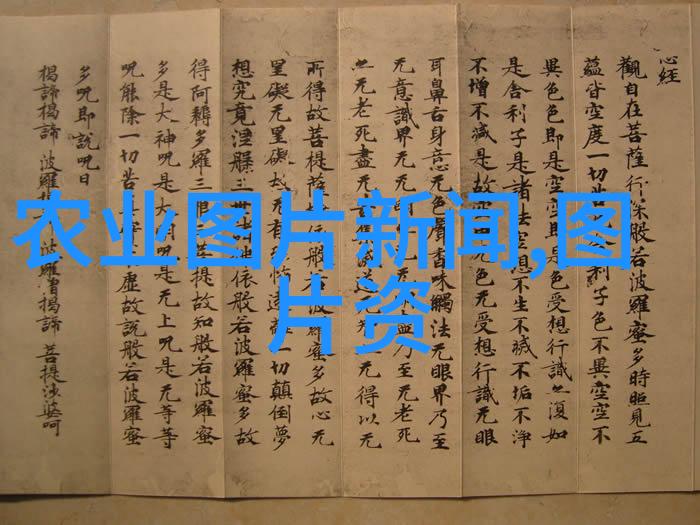 农业图片新闻,图
片资
心経
觀自在菩薩行深般若波羅蜜多時照見五
蘊皆空度一切利子色不異空空不
異色色即是空空即是色受想行識亦復如
是舍利子是諸法空想不生不滅不垢不淨
不增不減是故空无色无受想行識无眼
耳鼻舌身意无色聲香味觸法无眼界乃至
无意識界无无明盡乃至无老死
亦无老死盡无苦集滅道无得以无
所得故菩提依般若波羅蜜多故心无
罣礙无罣礙故无有怖遠離一切顛倒夢
想究竟涅槃三世諸佛依般若波羅蜜多故
得阿耨多羅三菩提故知般若波羅蜜
多是大神呪是大明呪是无上呪是无等等
呪能除一切苦不虛故說般若波羅蜜
多呪即說呪曰
揭諦揭諦 波羅揭 波羅僧揭諦 菩提沙婆呵